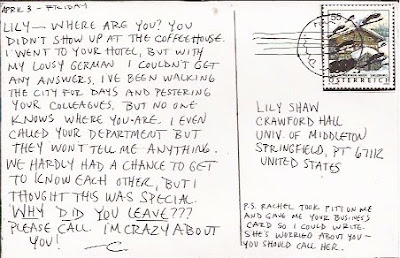 APRIL 3 - FRIDAY
LILY — WHERE ARE YOU? YOU
DIDN'T SHOW UP AT THE COFFEEHOUSE.
I WENT TO YOUR HOTEL, BUT WITH
MY LOUSY GERMAN I COULDN'T GET
ANY ANSWERS. I'VE BEEN WALKING
THE CITY FOR DAYS AND PESTERING
YOUR COLLEAGUES. BUT NO ONE
KNOWS WHERE YOU ARE. I EVEN
CALLED YOUR DEPARTMENT BUT
THEY WON'T TELL ME ANYTHING.
WE HARDLY HAD A CHANCE TO GET
TO KNOW EACH OTHER, BUT I
THOUGHT THIS WAS SPECIAL.
WHY DID YOU LEAVE???
PLEASE CALL. I'M CRAZY ABOUT
YOU! —C
ÖSTERREICH
LILY SHAW
CRAWFORD HALL
UNIV. OF MIDDLETON
SPRINGFIELD, PT 67112
UNITED STATES
P.S. RACHEL TOOK PITY ON ME
AND GAVE ME YOUR BUSINESS
CARD SO I COULD WRITE.
SHE'S WORRIED ABOUT YOU —
YOU SHOULD CALL HER.